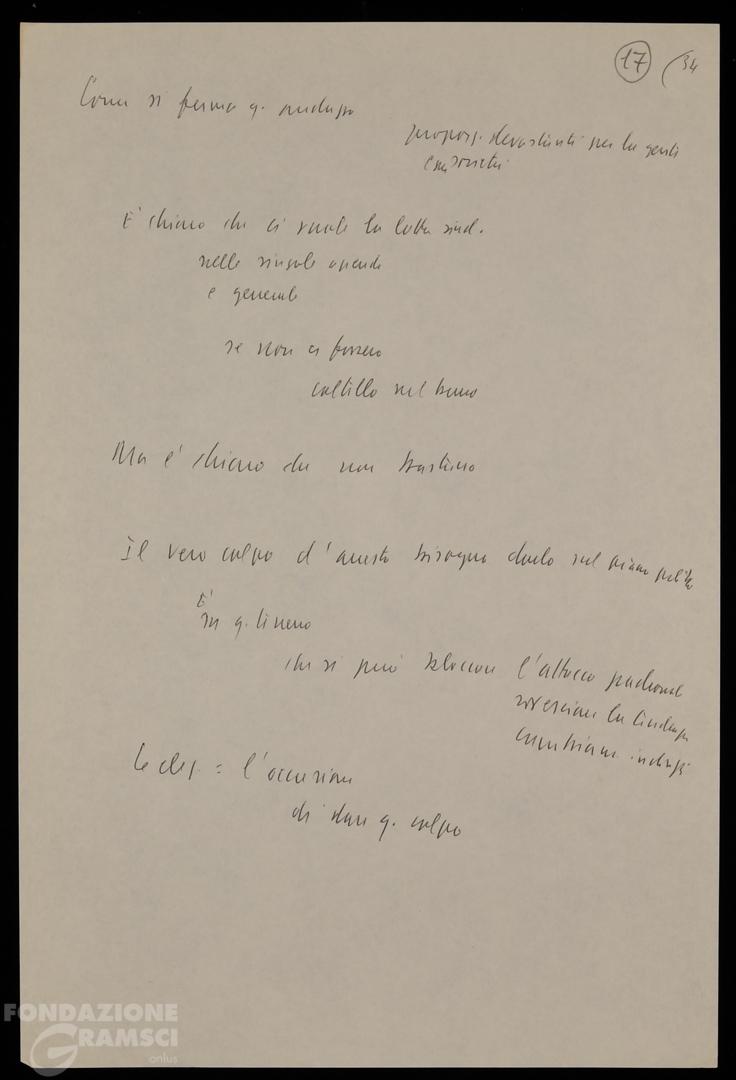 17 34
Come si ferma q. andazzo
propos. devastanti per la gente
e societ
È chiaro che ci vuole la lotta sind.
nelle singole aziende
e generale
se non ci fossero
coltello nel burro
Ma è chiaro che non bastano
Il vero colpo d'arresto bisogna darlo sul piano politico
È
in q. terreno
che si può bloccare l'attacco padronale
rovesciare la tendenza
cambiare indirizzi
Le elez. = l'occasione
di dare q. colpo
FONDAZIONE
GRAMSCI
onlus